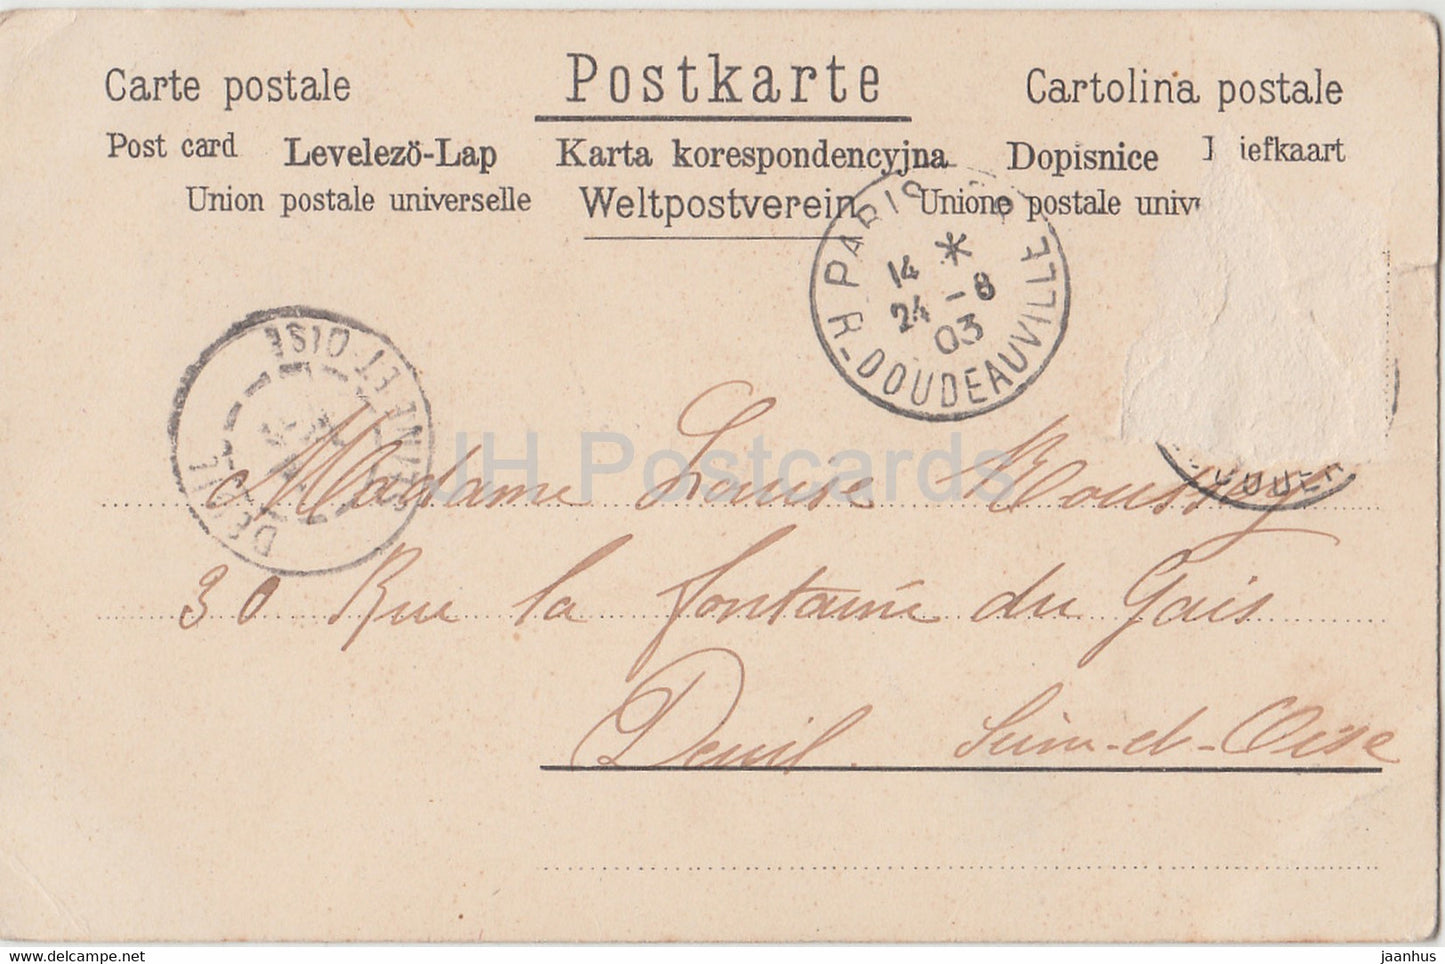 Carte postale Postkarte Cartolina postale
Post card Levelező-Lap Karta korespondencyjna Dopisnice iefkaart
Union postale universelle Weltpostverein Unione postale univ
PARIS
R. DOUDEAUVILLE
14 *
24 - 8
03
DEUIL
SEINE-ET-OISE
Madame Louise
30 Rue la fontaine du Gais
Deuil. Seine-et-Oise
JH Postcards
jaanhus